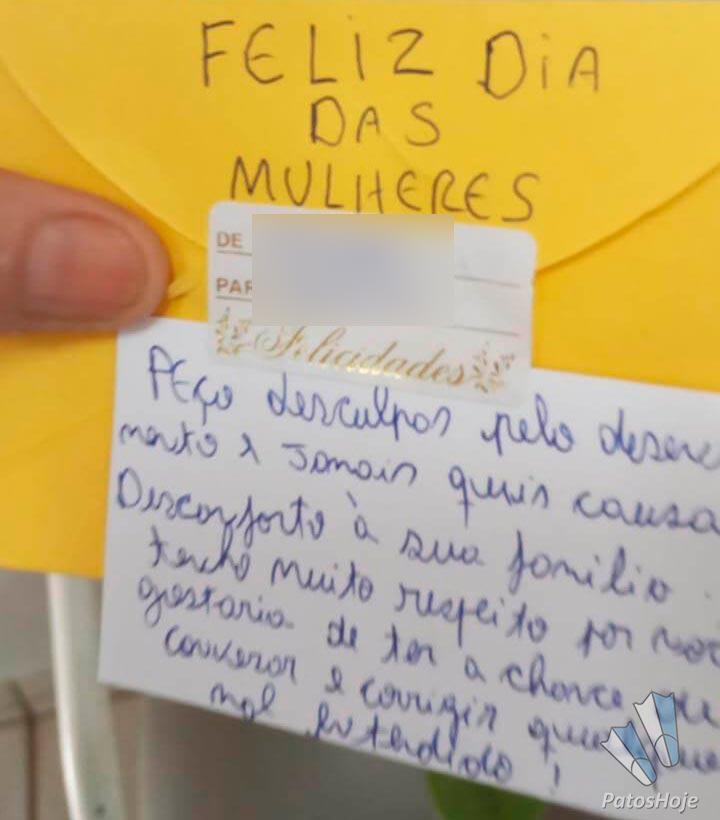 FELIZ DIA
DAS
MULHERES
DE
PAR
Felicidades
PEço desculpas pelo desen
mento e Jamais quis causa
Desconforto à sua família.
tenho muito respeito por
gostaria de ter a chance de
conversar e corrigir
mal entendido!
PatosHoje